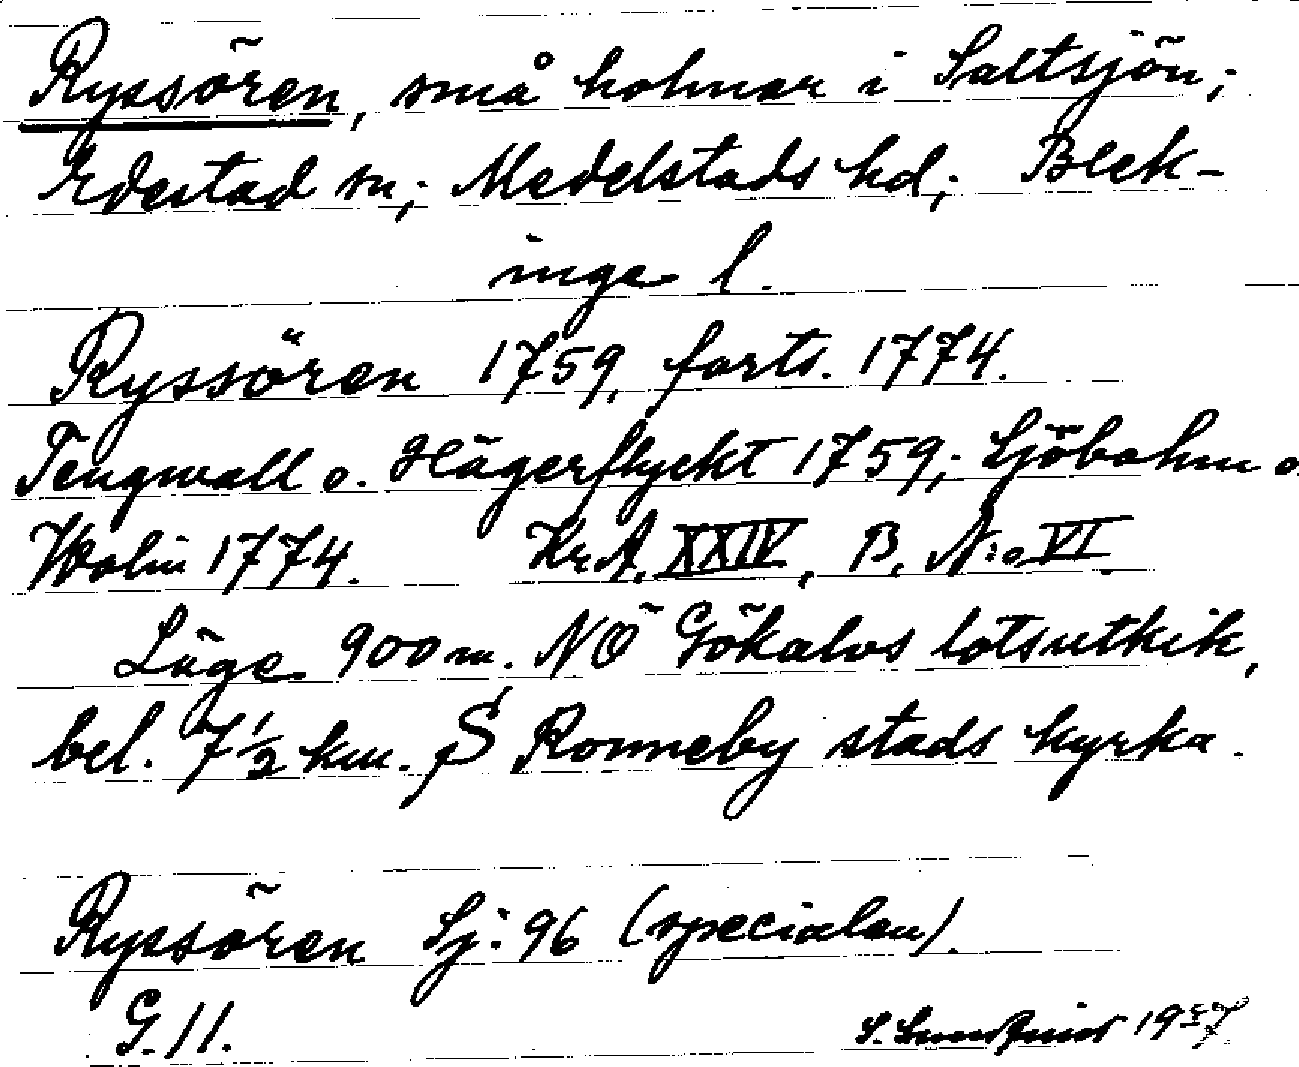 Ryssören, små holmar i Saltsjön;
Edestad sn; Medelstads hd; Blek-
inge l.
Ryssören 1759, forts. 1774.
Tengwall o. Hägerflyckt 1759; Sjöbohm o.
Wolin 1774. Kr.A. XXIV, B, N:o VI.
Läge 900 m. NÖ Gökalvs lotsutkik,
bel. 7 1/2 km. S Ronneby stads kyrka.
Ryssören Sj: 96 (specialen).
G. 11. S. 1957